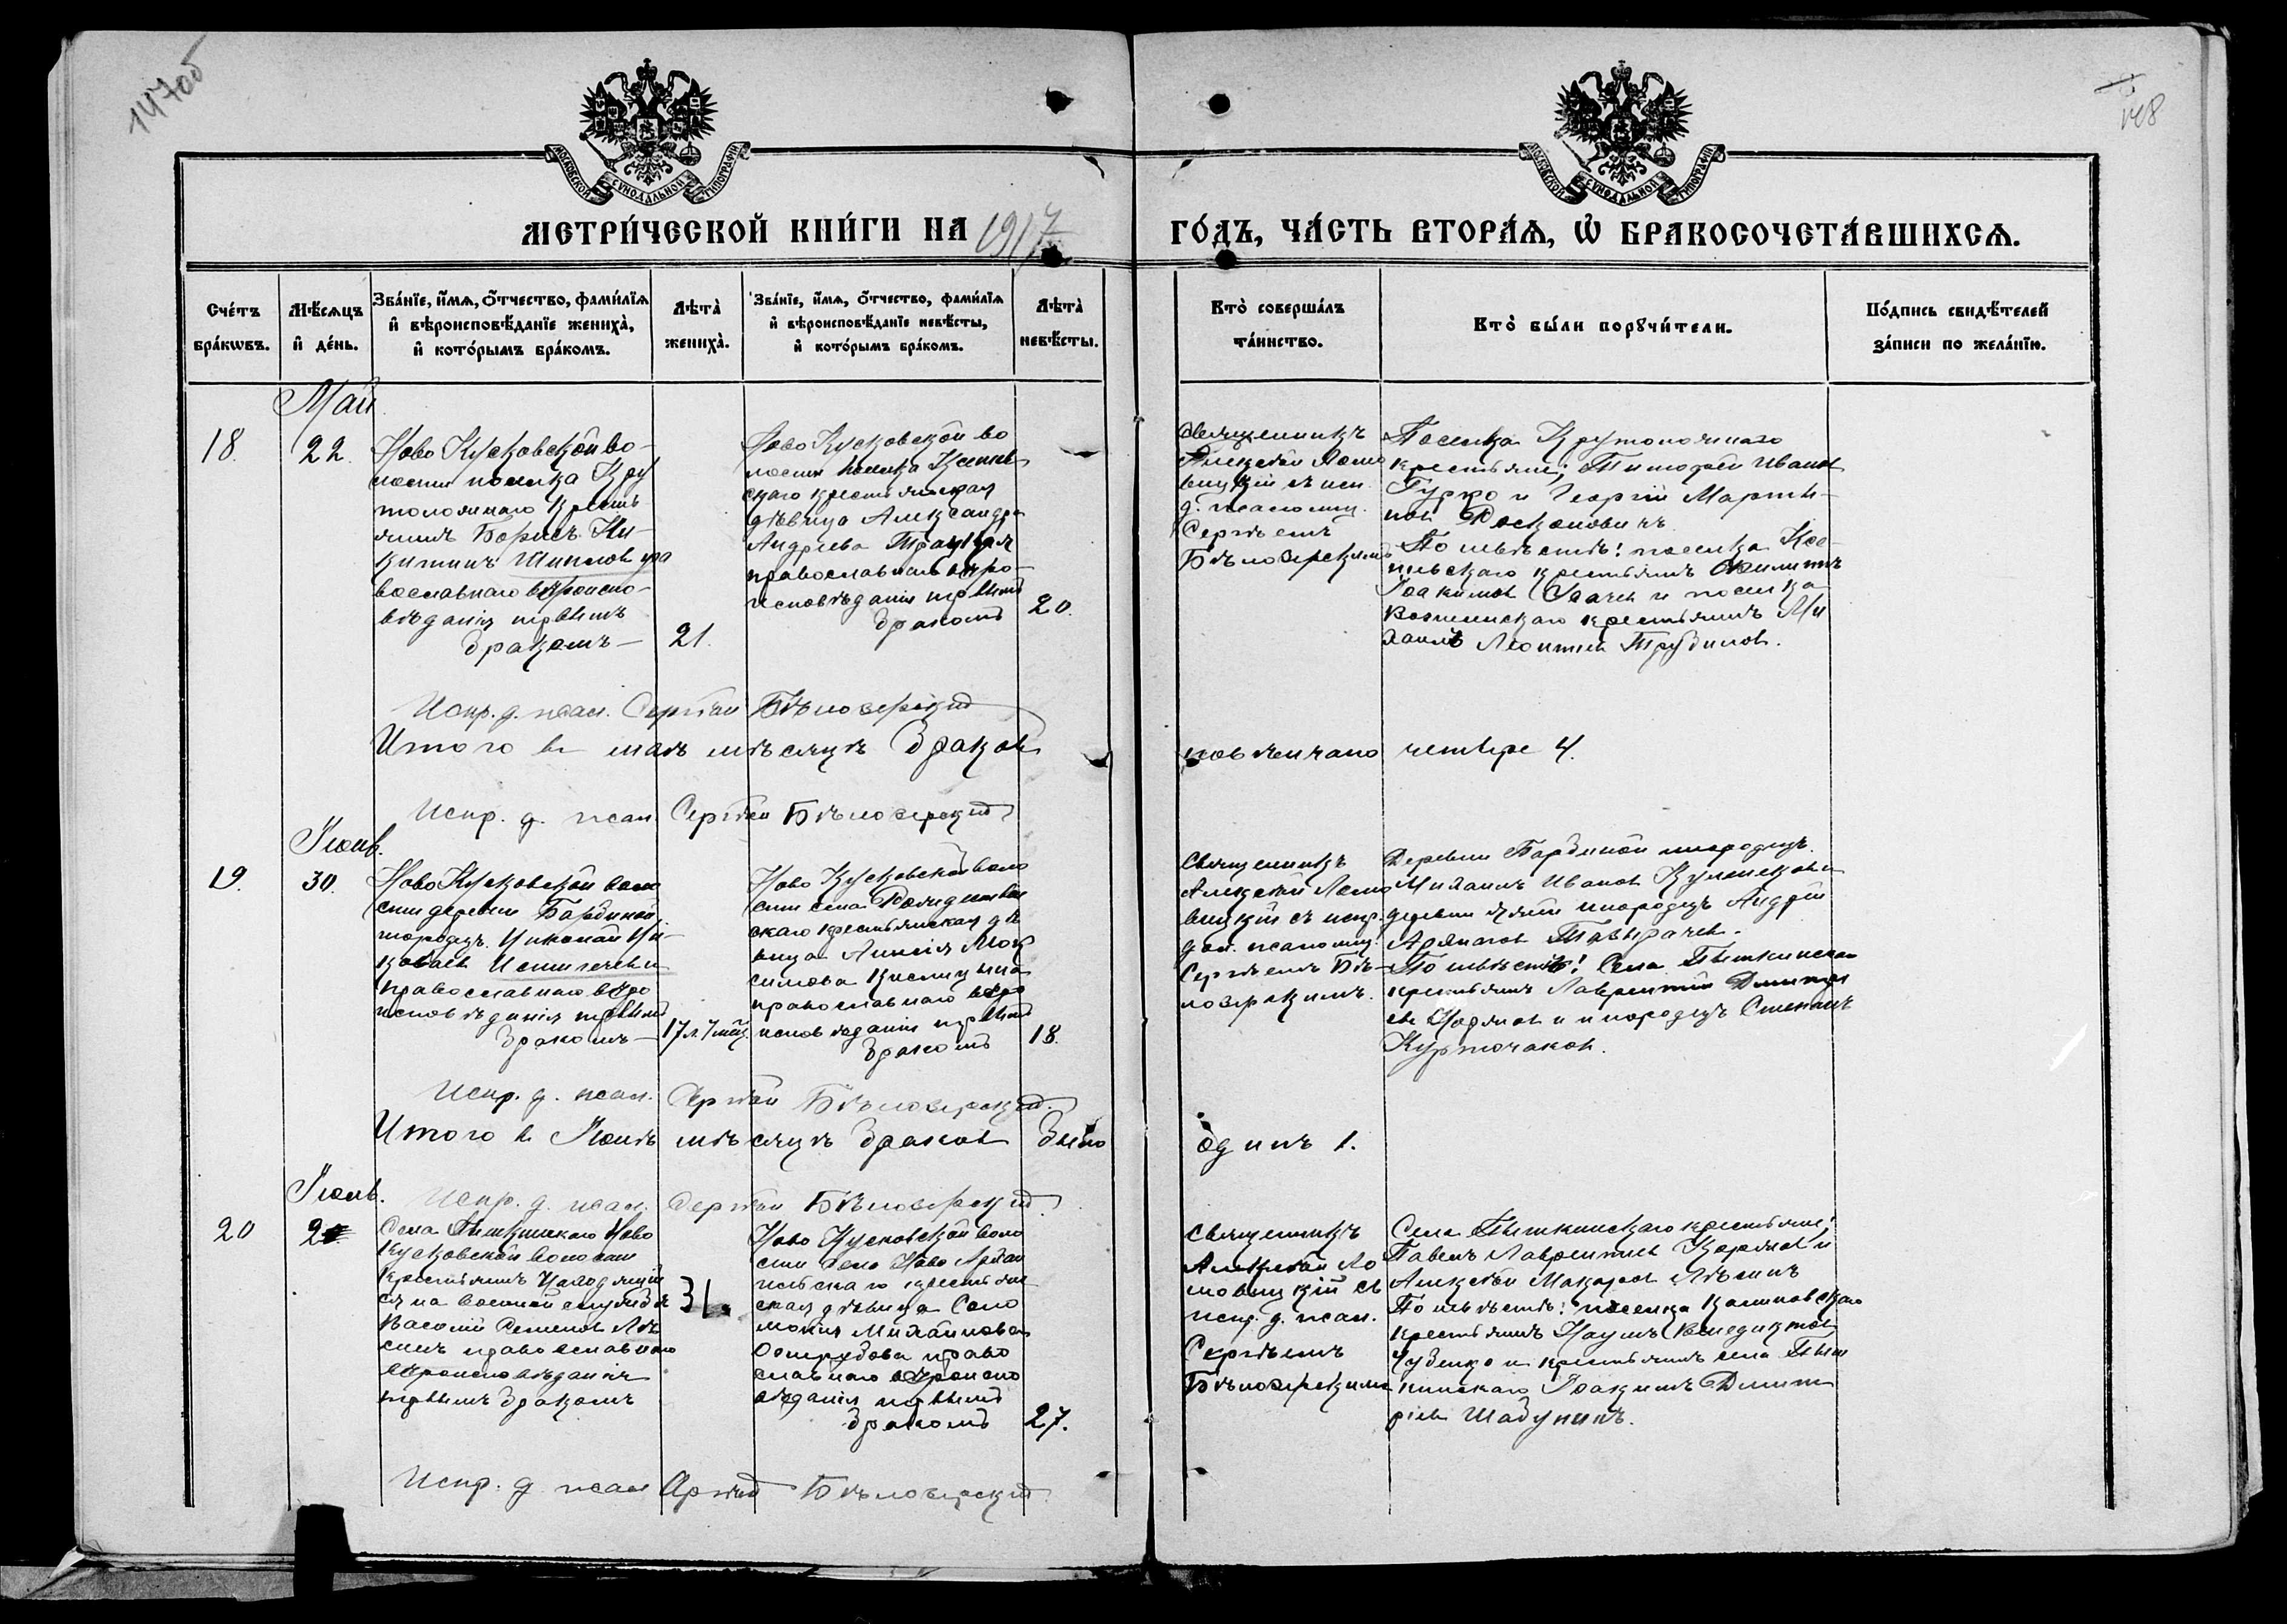 147об
148
МОСКОВСКОЙ СѴНОДАЛЬНОЙ ТИПОГРАФІИ
МОСКОВСКОЙ СѴНОДАЛЬНОЙ ТИПОГРАФІИ
МЕТРИ́ЧЕСКОЙ КНИ́ГИ НА 1917
ГО́ДЪ, ЧА́СТЬ ВТОРА́Ѧ, Ѡ БРАКОСОЧЕТА́ВШИХСѦ.
Сче́тъ
бра́кѡвъ.
Мѣ́сѧцъ
и҆ де́нь.
Зва́нїе, и҆́мѧ, ѻ҆́тчество, фами́лїѧ
и҆ вѣроисповѣ́данїе жениха̀,
и҆ кото́рымъ бра́комъ.
Лѣта̀
жениха̀.
Зва́нїе, и҆́мѧ, ѻ҆́тчество, фами́лїѧ
и҆ вѣроисповѣ́данїе невѣ́сты,
и҆ кото́рымъ бра́комъ.
Лѣта̀
невѣ́сты.
Кто̀ соверша́лъ
та́инство.
Кто̀ бы́ли порꙋчи́тели.
По́дпись свидѣ́телей
за́писи по жела́нїю.
Май
18.
22
Ново Кусковской во-
лости поселка Кру
толожнаго крестья
нинъ Борисъ Ни-
китинъ Шипилов пра
вославнаго вѣроиспо-
вѣданія первымъ
бракомъ—
21.
Ново Кусковской во
лости поселка Ксеньев
скаго крестьянская
дѣвица Александра
Андреева
православнаго вѣро-
исповѣданія первымъ
бракомъ
20.
Священникъ
Алексѣй Ломо
вицкій съ исп.
д. псаломщ.
Сергѣемъ
Бѣлозерскимъ
Поселка Крутоложнаго
крестьяне; Тимофей Иванов
Гурко и Георгій Марти-
нов Росканович
По невѣстѣ: поселка Ксе-
ньевскаго крестьянинъ Филиппъ
Іоакимов и поселка
Вознесенскаго крестьянинъ Ми
хаилъ Леонтиев Трубилов.
Испр. д. псал. Сергѣй Бѣлозерскій
Итого въ маѣ мѣсяцѣ браков повѣнчано четыре 4.
Испр. д. псал. Сергѣй Бѣлозерскій
Іюнь.
19.
30.
Ново Кусковской воло
сти деревни Барбиной
инородецъ Николай Ни-
колаев
православнаго вѣро
исповѣданія первымъ
бракомъ—
17 л. 7 мѣц.
Ново Кусковской воло
сти села Рождествен
скаго крестьянская дѣ
вица Анисія Мак
симова Кислицына
православнаго вѣро
исповѣданія первымъ
бракомъ
18.
Священникъ
Алексѣй Ломо
вицкій съ испр.
дол. псаломщ.
Сергѣемъ Бѣ-
лозерскимъ.
Деревни Барбиной инородецъ
Михаилъ Иванов и
деревни инородецъ Андрей
По невѣстѣ: Села Пышкинскаго
крестьянинъ Лаврентій Дмитри
ев Корзнов и инородецъ Степанъ
Курточаков.
Испр. д. псал. Сергѣй Бѣлозерскій.
Итого въ Іюнѣ мѣсяцѣ браков было одинъ 1.
Испр. д. псал. Сергѣй Бѣлозерскій.
Іюль.
20
2
Села Пышкинскаго Ново
Кусковской волости
крестьянинъ находящій
ся на военной службѣ
Василій Семенов Лѣ
синъ православнаго
вѣроисповѣданія
первымъ бракомъ
31.
Ново Кусковской воло
сти село Ново Архан
гельскаго крестьян
ская дѣвица Соло
монія Михайлова
православнаго вѣроиспо
вѣданія первымъ
бракомъ
27.
Священникъ
Алексѣй Ло
мовицкій съ
испр. д. псал.
Сергѣемъ
Бѣлозерскимъ
Села Пышкинскаго крестьяне;
Павелъ Лаврентиев Корзнов и
Алексѣй Макаров Лѣсинъ
По невѣстѣ: поселка Калиновскаго
крестьянинъ Наумъ Венедиктов
Чубенко и крестьянинъ села Пыш
кинскаго Іоакимъ Димит
ріев Шабунинъ.
Испр. д. псал Сергѣй Бѣлозерскій.